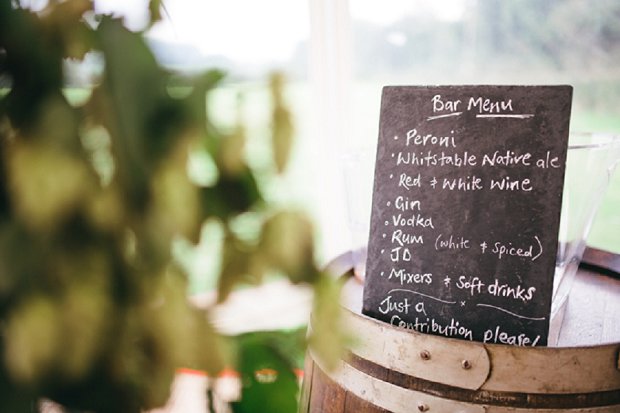 Bar Menu
• Peroni
• Whitstable Native ale
• Red & White wine
• Gin
• Vodka
• Rum (white & Spiced)
• JD
• Mixers & Soft drinks
x
Just a
Contribution please!